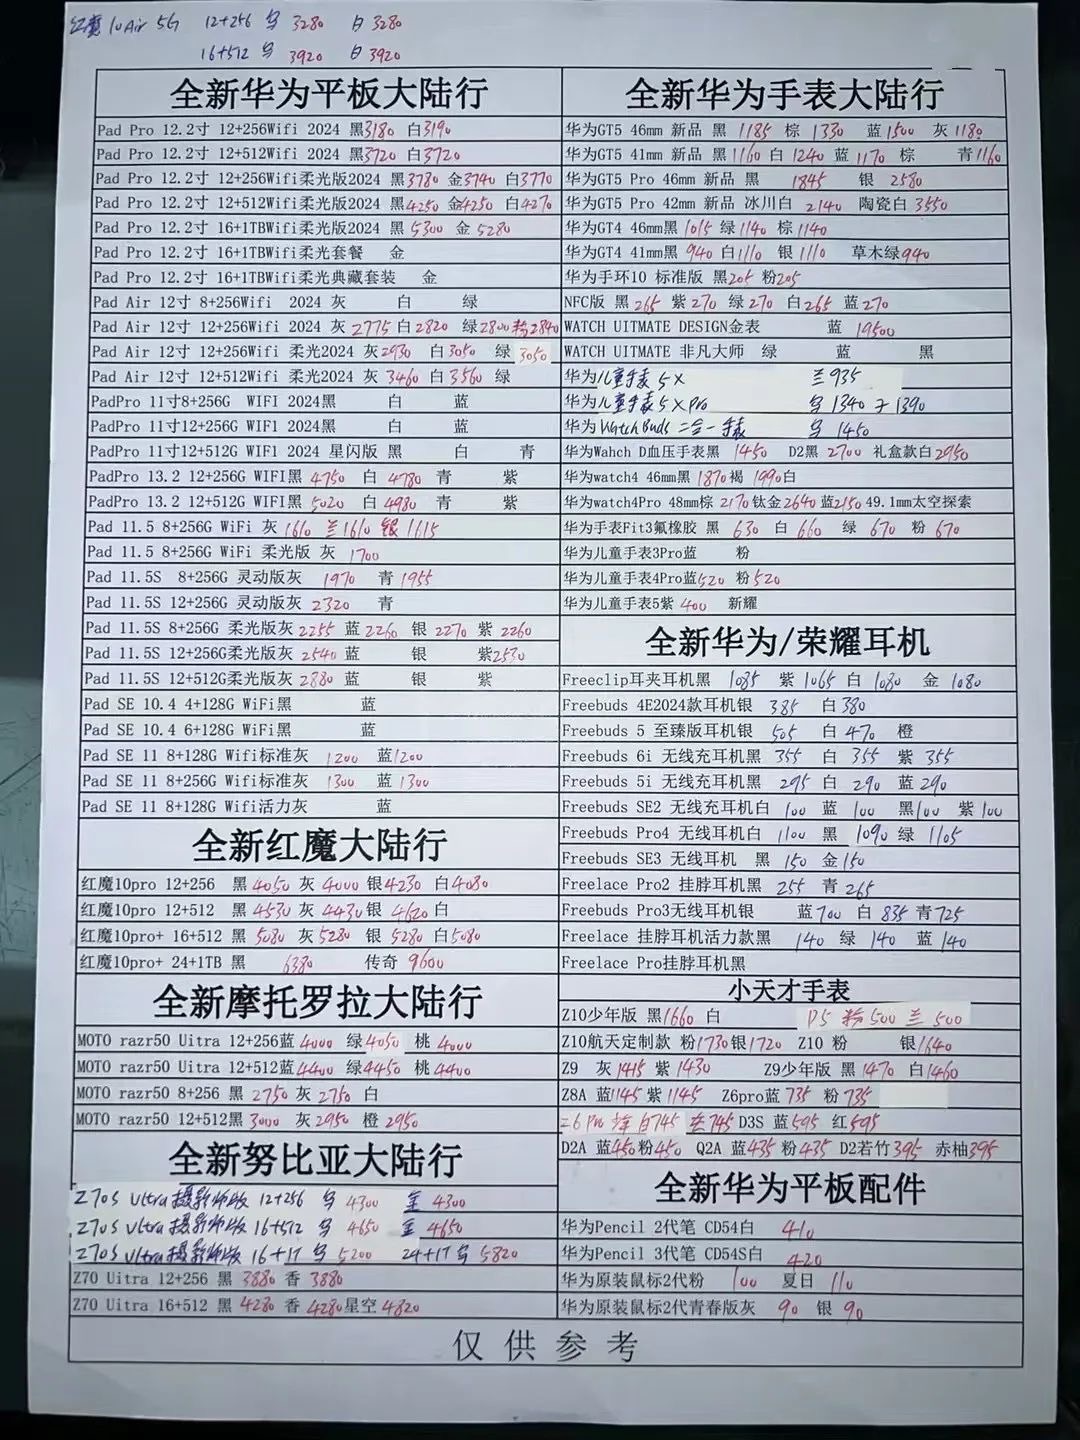 红魔10Air 5G 12+256 乌 3280 白 3280
16+512 乌 3920 白 3920
全新华为平板大陆行
Pad Pro 12.2寸 12+256Wifi 2024 黑3180 白3190
Pad Pro 12.2寸 12+512Wifi 2024 黑3720 白3720
Pad Pro 12.2寸 12+256Wifi柔光版2024 黑3780 金3740 白3770
Pad Pro 12.2寸 12+512Wifi柔光版2024 黑4250 金4250 白4270
Pad Pro 12.2寸 16+1TBWifi柔光版2024 黑5300 金5280
Pad Pro 12.2寸 16+1TBWifi柔光套餐 金
Pad Pro 12.2寸 16+1TBWifi柔光典藏套装 金
Pad Air 12寸 8+256Wifi 2024 灰 白 绿
Pad Air 12寸 12+256Wifi 2024 灰2775 白2820 绿2800 粉2840
Pad Air 12寸 12+256Wifi 柔光2024 灰2930 白3050 绿3050
Pad Air 12寸 12+512Wifi 柔光2024 灰3460 白3560 绿
PadPro 11寸8+256G WIFI 2024黑 白 蓝
PadPro 11寸12+256G WIF1 2024黑 白 蓝
PadPro 11寸12+512G WIF1 2024 星闪版 黑 白 青
PadPro 13.2 12+256G WIFI黑 4750 白 4780 青 紫
PadPro 13.2 12+512G WIFI黑 5020 白 4980 青 紫
Pad 11.5 8+256G WiFi 灰1610 兰1610 银1615
Pad 11.5 8+256G WiFi 柔光版 灰 1700
Pad 11.5S 8+256G 灵动版灰 1970 青1955
Pad 11.5S 12+256G 灵动版灰 2320 青
Pad 11.5S 8+256G 柔光版灰2255 蓝2260 银2270 紫2260
Pad 11.5S 12+256G柔光版灰2540 蓝 银 紫2530
Pad 11.5S 12+512G柔光版灰2880 蓝 银 紫
Pad SE 10.4 4+128G WiFi黑 蓝
Pad SE 10.4 6+128G WiFi黑 蓝
Pad SE 11 8+128G Wifi标准灰 1200 蓝1200
Pad SE 11 8+256G Wifi标准灰 1300 蓝1300
Pad SE 11 8+128G Wifi活力灰 蓝
全新红魔大陆行
红魔10pro 12+256 黑4050 灰4000 银4230 白4080
红魔10pro 12+512 黑4530 灰4430 银4620 白
红魔10pro+ 16+512 黑5080 灰5280 银5280 白5080
红魔10pro+ 24+1TB 黑 6380 传奇9600
全新摩托罗拉大陆行
MOTO razr50 Uitra 12+256蓝4000 绿4050 桃4000
MOTO razr50 Uitra 12+512蓝4400 绿4450 桃4400
MOTO razr50 8+256 黑2750 灰2750 白
MOTO razr50 12+512黑3000 灰2950 橙2950
全新努比亚大陆行
Z70S Ultra摄影师版 12+256 乌4300 金4300
Z70S Ultra摄影师版 16+512 乌4650 金4650
Z70S Ultra摄影师版 16+1T 乌5200 24+1T乌5820
Z70 Uitra 12+256 黑3880 香3880
Z70 Uitra 16+512 黑4280 香4280 星空4820
全新华为手表大陆行
华为GT5 46mm 新品 黑 1185 棕 1330 蓝1500 灰1180
华为GT5 41mm 新品 黑1160 白1240 蓝1170 棕 青1160
华为GT5 Pro 46mm 新品 黑 1845 银 2580
华为GT5 Pro 42mm 新品 冰川白 2140 陶瓷白 3550
华为GT4 46mm黑1015 绿1140 棕1140
华为GT4 41mm黑940 白1110 银1110 草木绿940
华为手环10 标准版 黑205 粉205
NFC版 黑265 紫270 绿270 白265 蓝270
WATCH UITMATE DESIGN金表 蓝 19500
WATCH UITMATE 非凡大师 绿 蓝 黑
华为儿童手表5X 兰935
华为儿童手表5XPro 乌1340 子1390
华为WatchBuds二合一手表 乌1450
华为Wahch D血压手表黑 1450 D2黑2700 礼盒款白2950
华为watch4 46mm黑1870褐1990白
华为watch4Pro 48mm棕2170钛金2640蓝2150 49.1mm太空探索
华为手表Fit3氟橡胶 黑 630 白 660 绿 670 粉 670
华为儿童手表3Pro蓝 粉
华为儿童手表4Pro蓝520 粉520
华为儿童手表5紫 400 新耀
全新华为/荣耀耳机
Freeclip耳夹耳机黑 1085 紫1065 白1080 金1080
Freebuds 4E2024款耳机银 385 白380
Freebuds 5 至臻版耳机银 505 白470 橙
Freebuds 6i 无线充耳机黑 355 白 355 紫 355
Freebuds 5i 无线充耳机黑 295 白 290 蓝290
Freebuds SE2 无线充耳机白 100 蓝 100 黑100 紫100
Freebuds Pro4 无线耳机白 1100 黑 1090 绿 1105
Freebuds SE3 无线耳机 黑 150 金150
Freelace Pro2 挂脖耳机黑 255 青265
Freebuds Pro3无线耳机银 蓝700 白835 青725
Freelace 挂脖耳机活力款黑 140 绿 140 蓝140
Freelace Pro挂脖耳机黑
小天才手表
Z10少年版 黑1660 白 D5 粉500 兰500
Z10航天定制款 粉1730银1720 Z10 粉 银1640
Z9 灰1415 紫1430 Z9少年版 黑1470 白1460
Z8A 蓝1145 紫1145 Z6pro蓝735 粉735
Z6Pro 白745 745 D3S 蓝595 红595
D2A 蓝450粉450 Q2A 蓝435 粉435 D2若竹395 赤柚395
全新华为平板配件
华为Pencil 2代笔 CD54白 410
华为Pencil 3代笔 CD54S白 420
华为原装鼠标2代粉 100 夏日 110
华为原装鼠标2代青春版灰 90 银 90
仅供参考